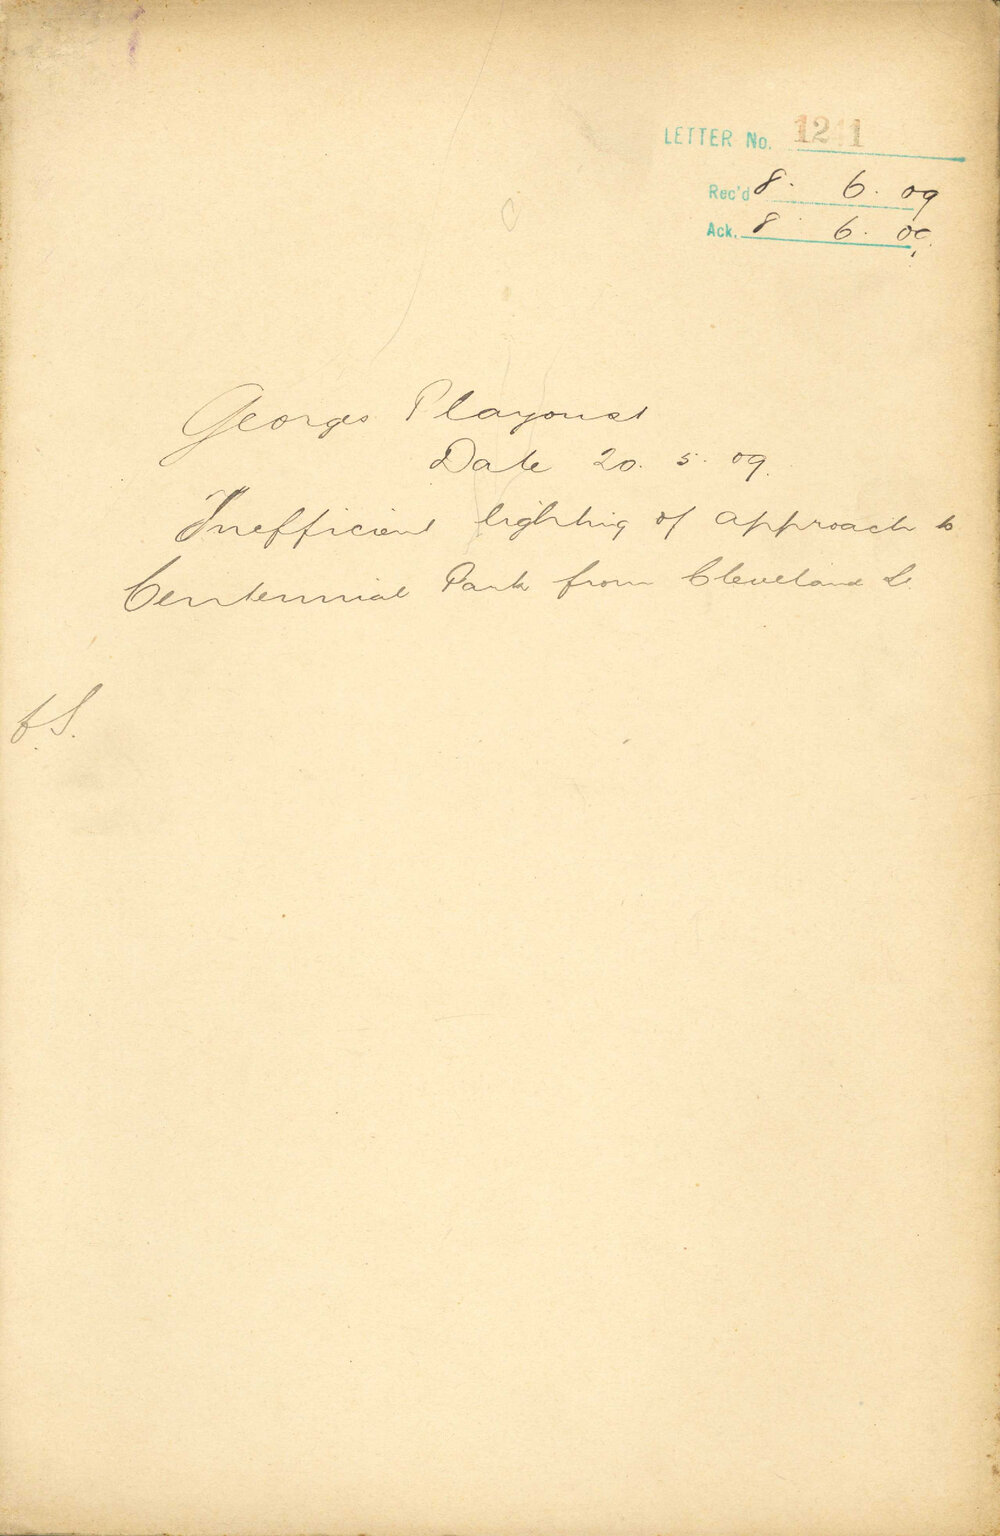 LETTER No. 1241
Rec'd 8. 6. 09
Ack. 8. 6. 09.
Georges Playoust
Date 20. 5. 09.
Inefficient lighting of approach to
Centennial Park from Cleveland St.